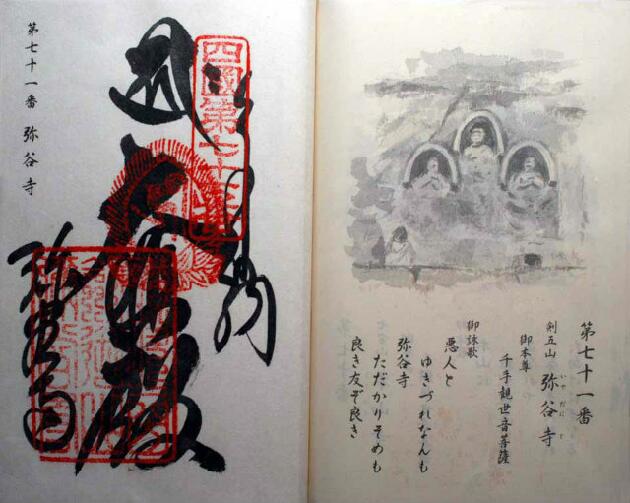 第七十一番
剣五山 弥谷寺
いやだにじ
御本尊
千手観世音菩薩
御詠歌
悪人と
ゆきづれなんも
弥谷寺
ただかりそめも
良き友ぞ良き
四國第七十一番
弥谷寺
第七十一番 弥谷寺